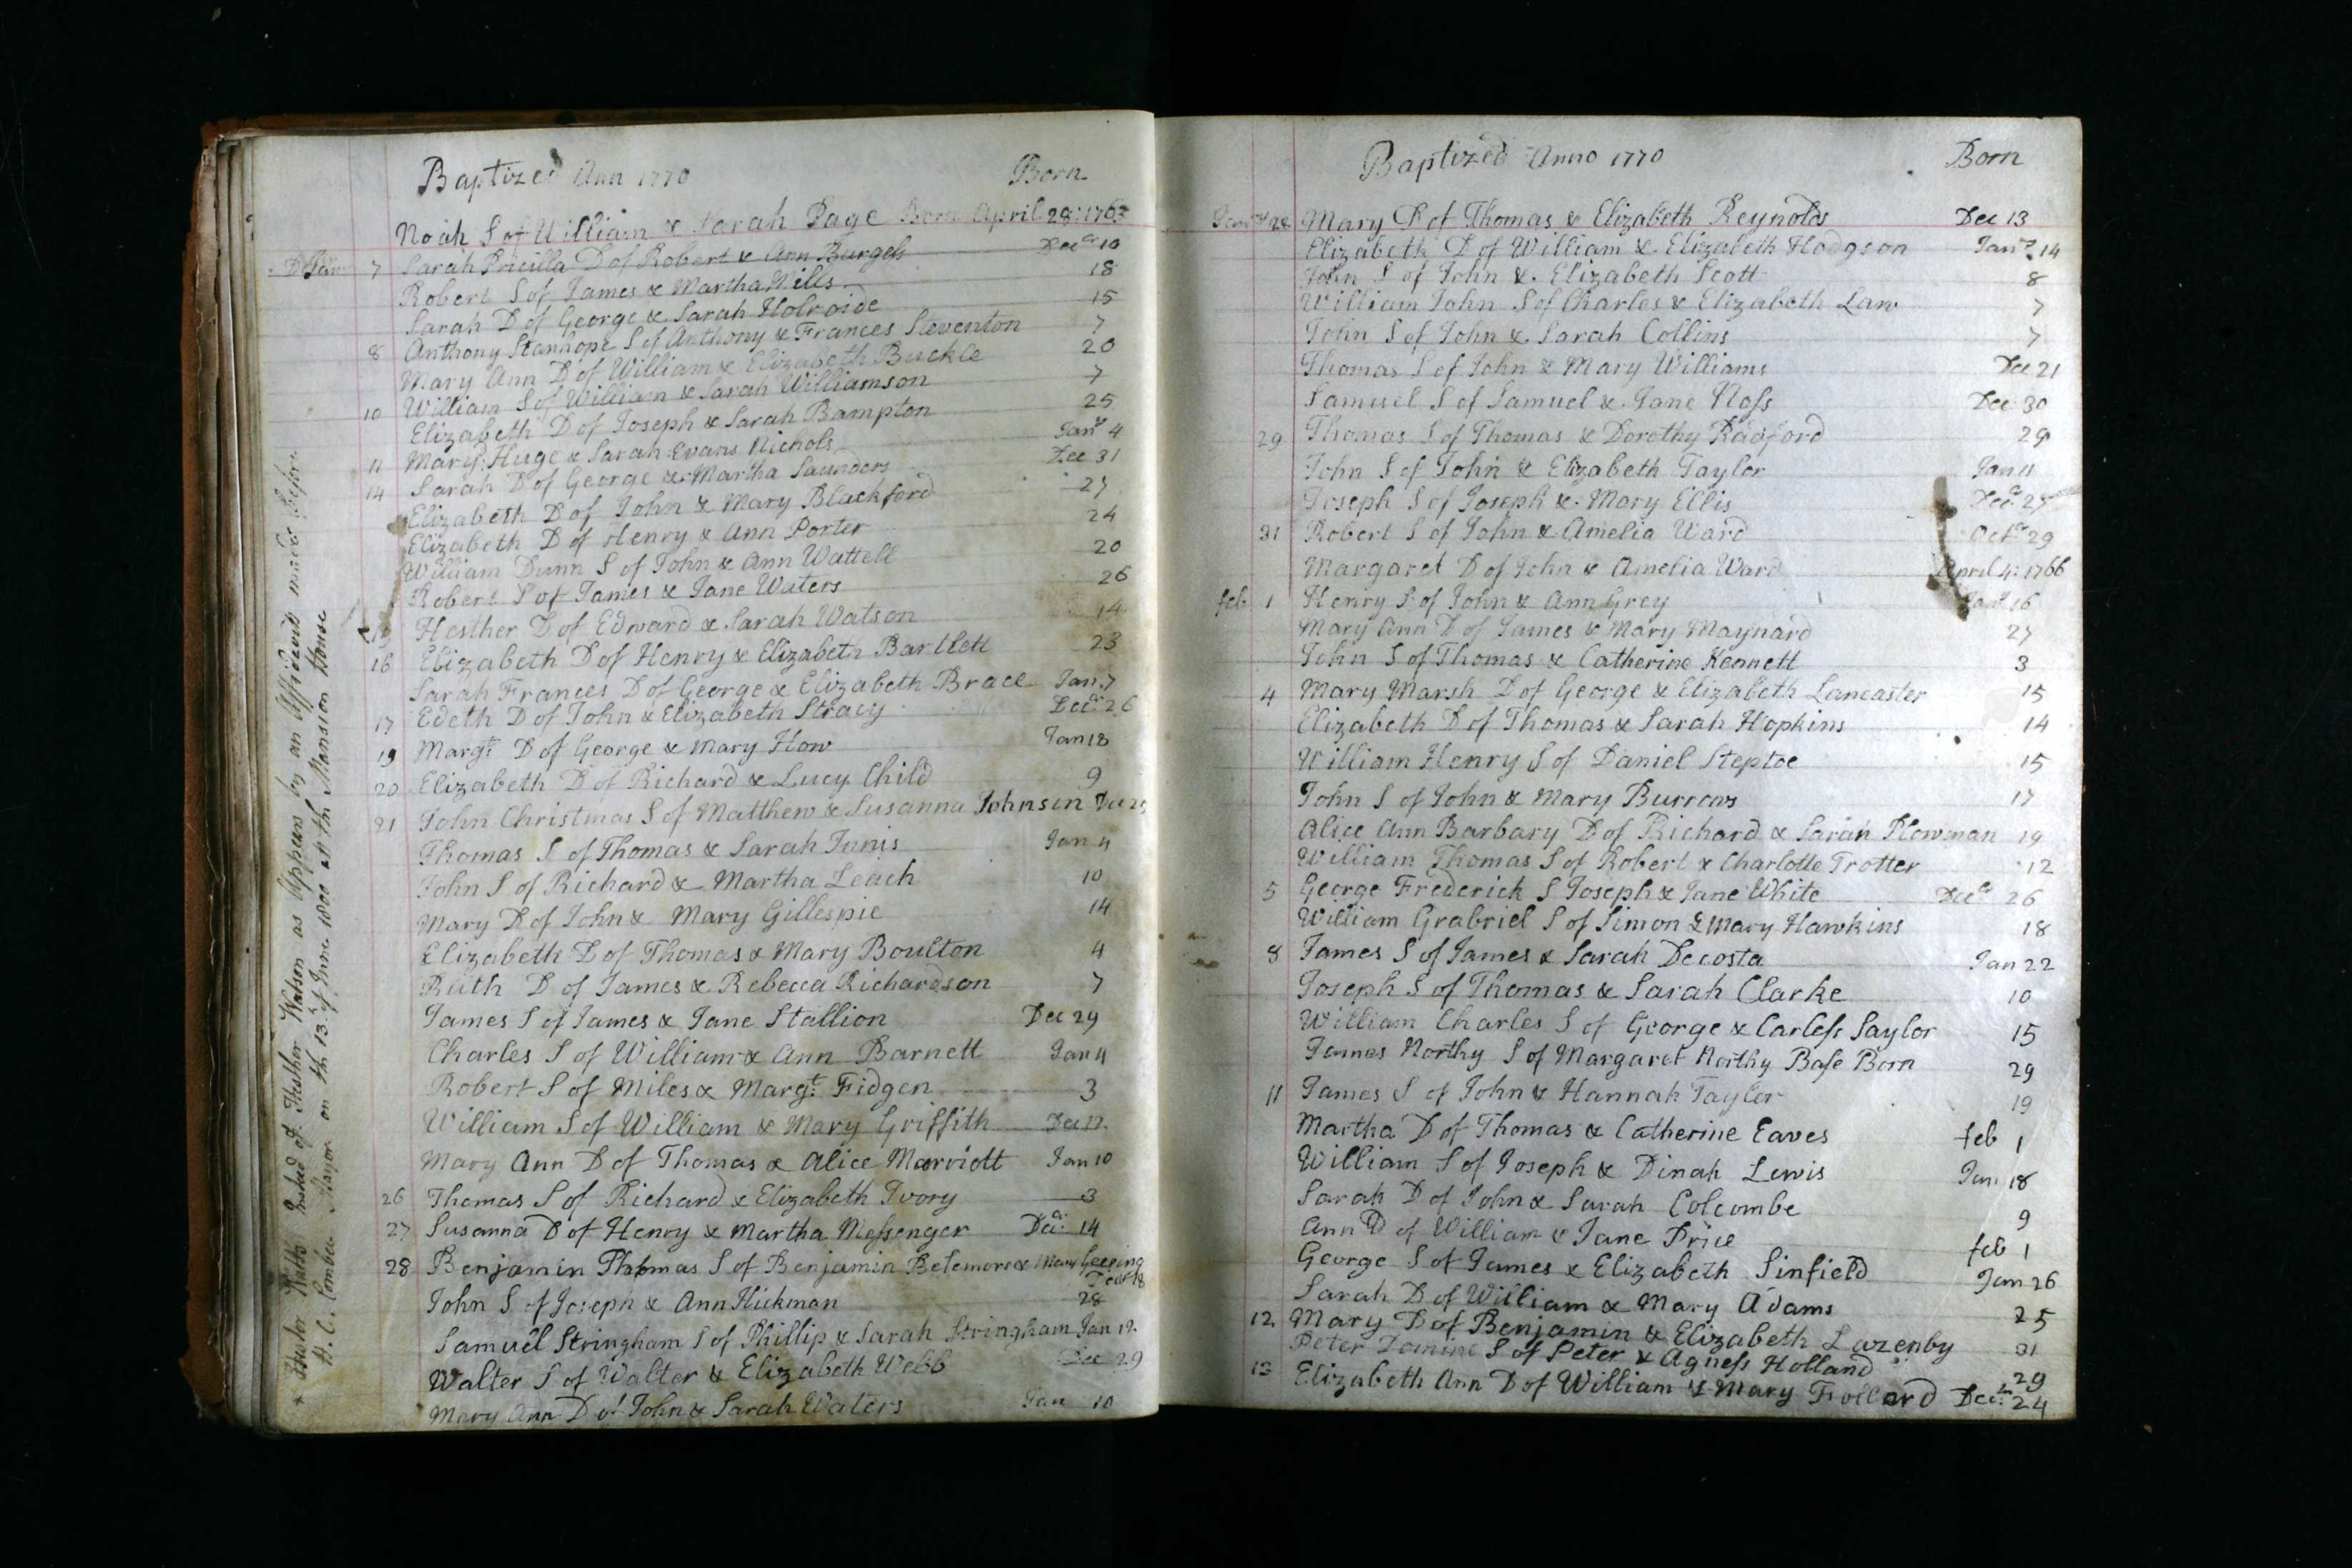 Baptized Ann 1770 Born
Noah S of William & Sarah Page Born April 28: 1763
Jan 7 Sarah Pricilla D of Robert & Ann Burgess Decr 10
Robert S of James & Martha Mills 18
Sarah D of George & Sarah Holroide 15
8 Anthony Stanhope S of Anthony & Frances Steventon 7
Mary Ann D of William & Elizabeth Buckle 20
10 William S of William & Sarah Williamson 7
Elizabeth D of Joseph & Sarah Bampton 25
11 Mary: Huge & Sarah Evans Nichols Jany 4
14 Sarah D of George & Martha Saunders Dec 31
Elizabeth D of John & Mary Blackford 27
Elizabeth D of Henry & Ann Porter 24
William Dunn S of John & Ann Wattell 20
Robert S of James & Jane Waters 26
Hesther D of Edward & Sarah Watson 14
16 Elizabeth D of Henry & Elizabeth Bartlett 23
Sarah Frances D of George & Elizabeth Brace Jan 7
17 Edeth D of John & Elizabeth Stracy Decr 26
19 Margt: D of George & Mary How Jan 18
20 Elizabeth D of Richard & Lucy Child 9
21 John Christmas S of Matthew & Susanna Johnson Dec 25
Thomas S of Thomas & Sarah Junis Jan 4
John S of Richard & Martha Leach 10
Mary D of John & Mary Gillespie 14
Elizabeth D of Thomas & Mary Boulton 4
Ruth D of James & Rebecca Richardson 7
James S of James & Jane Stallion Dec 29
Charles S of William & Ann Barnett Jan 4
Robert S of Miles & Margt: Fidgen 3
William S of William & Mary Griffith Dec 12
Mary Ann D of Thomas & Alice Marriott Jan 10
26 Thomas S of Richard & Elizabeth Ivory 3
27 Susanna D of Henry & Martha Messenger Decr: 14
28 Benjamin Thomas S of Benjamin Betemore & Mary Geeping
18
John S of Joseph & Ann Hickman 28
Samuel Stringham S of Phillip & Sarah Stringham Jan 12
Walter S of Walter & Elizabeth Webb Dec 29
Mary Ann D of John & Sarah Waters Jan 10
Hester Watson as Appears by an Affidavit made before
H. C. Combe Mayor on th 13 of June 1800 at the Mansion House
Baptized Anno 1770 Born
Jany 28 Mary D of Thomas & Elizabeth Reynolds Dec 13
Elizabeth D of William & Elizabeth Hodgson Jany 14
John S of John & Elizabeth Scott 8
William John S of Charles & Elizabeth Law 7
John S of John & Sarah Collins 7
Thomas S of John & Mary Williams Dec 21
Samuel S of Samuel & Jane Noss Dec 30
29 Thomas S of Thomas & Dorothy Radford 29
John S of John & Elizabeth Taylor Jan 11
Joseph S of Joseph & Mary Ellis Decr 27
31 Robert S of John & Amelia Ward Octr 29
Margaret D of John & Amelia Ward April 4: 1766
feb 1 Henry S of John & Ann Grey Jany 16
Mary Ann D of James & Mary Maynard 27
John S of Thomas & Catherine Kennett 3
4 Mary Marsh D of George & Elizabeth Lancaster 15
Elizabeth D of Thomas & Sarah Hopkins 14
William Henry S of Daniel Steptoe 15
John S of John & Mary Burrows 17
Alice Ann Barbary D of Richard & Sarah Plowman 19
William Thomas S of Robert & Charlotte Trotter 12
5 George Frederick S Joseph & Jane White Decr 26
William Grabriel S of Simon & Mary Hawkins 18
8 James S of James & Sarah Decosta Jan 22
Joseph S of Thomas & Sarah Clarke 10
William Charles S of George & Carless Saylor 15
James Northy S of Margaret Northy Base Born 29
11 James S of John & Hannah Taylor 19
Martha D of Thomas & Catherine Eaves feb 1
William S of Joseph & Dinah Lewis Jan 18
Sarah D of John & Sarah Colcombe 9
Ann D of William & Jane Price feb 1
George S of James & Elizabeth Sinfield Jan 26
Sarah D of William & Mary Adams 25
12 Mary D of Benjamin & Elizabeth Lazenby 31
Peter S of Peter & Agness Holland 29
13 Elizabeth Ann D of William & Mary Decr: 24